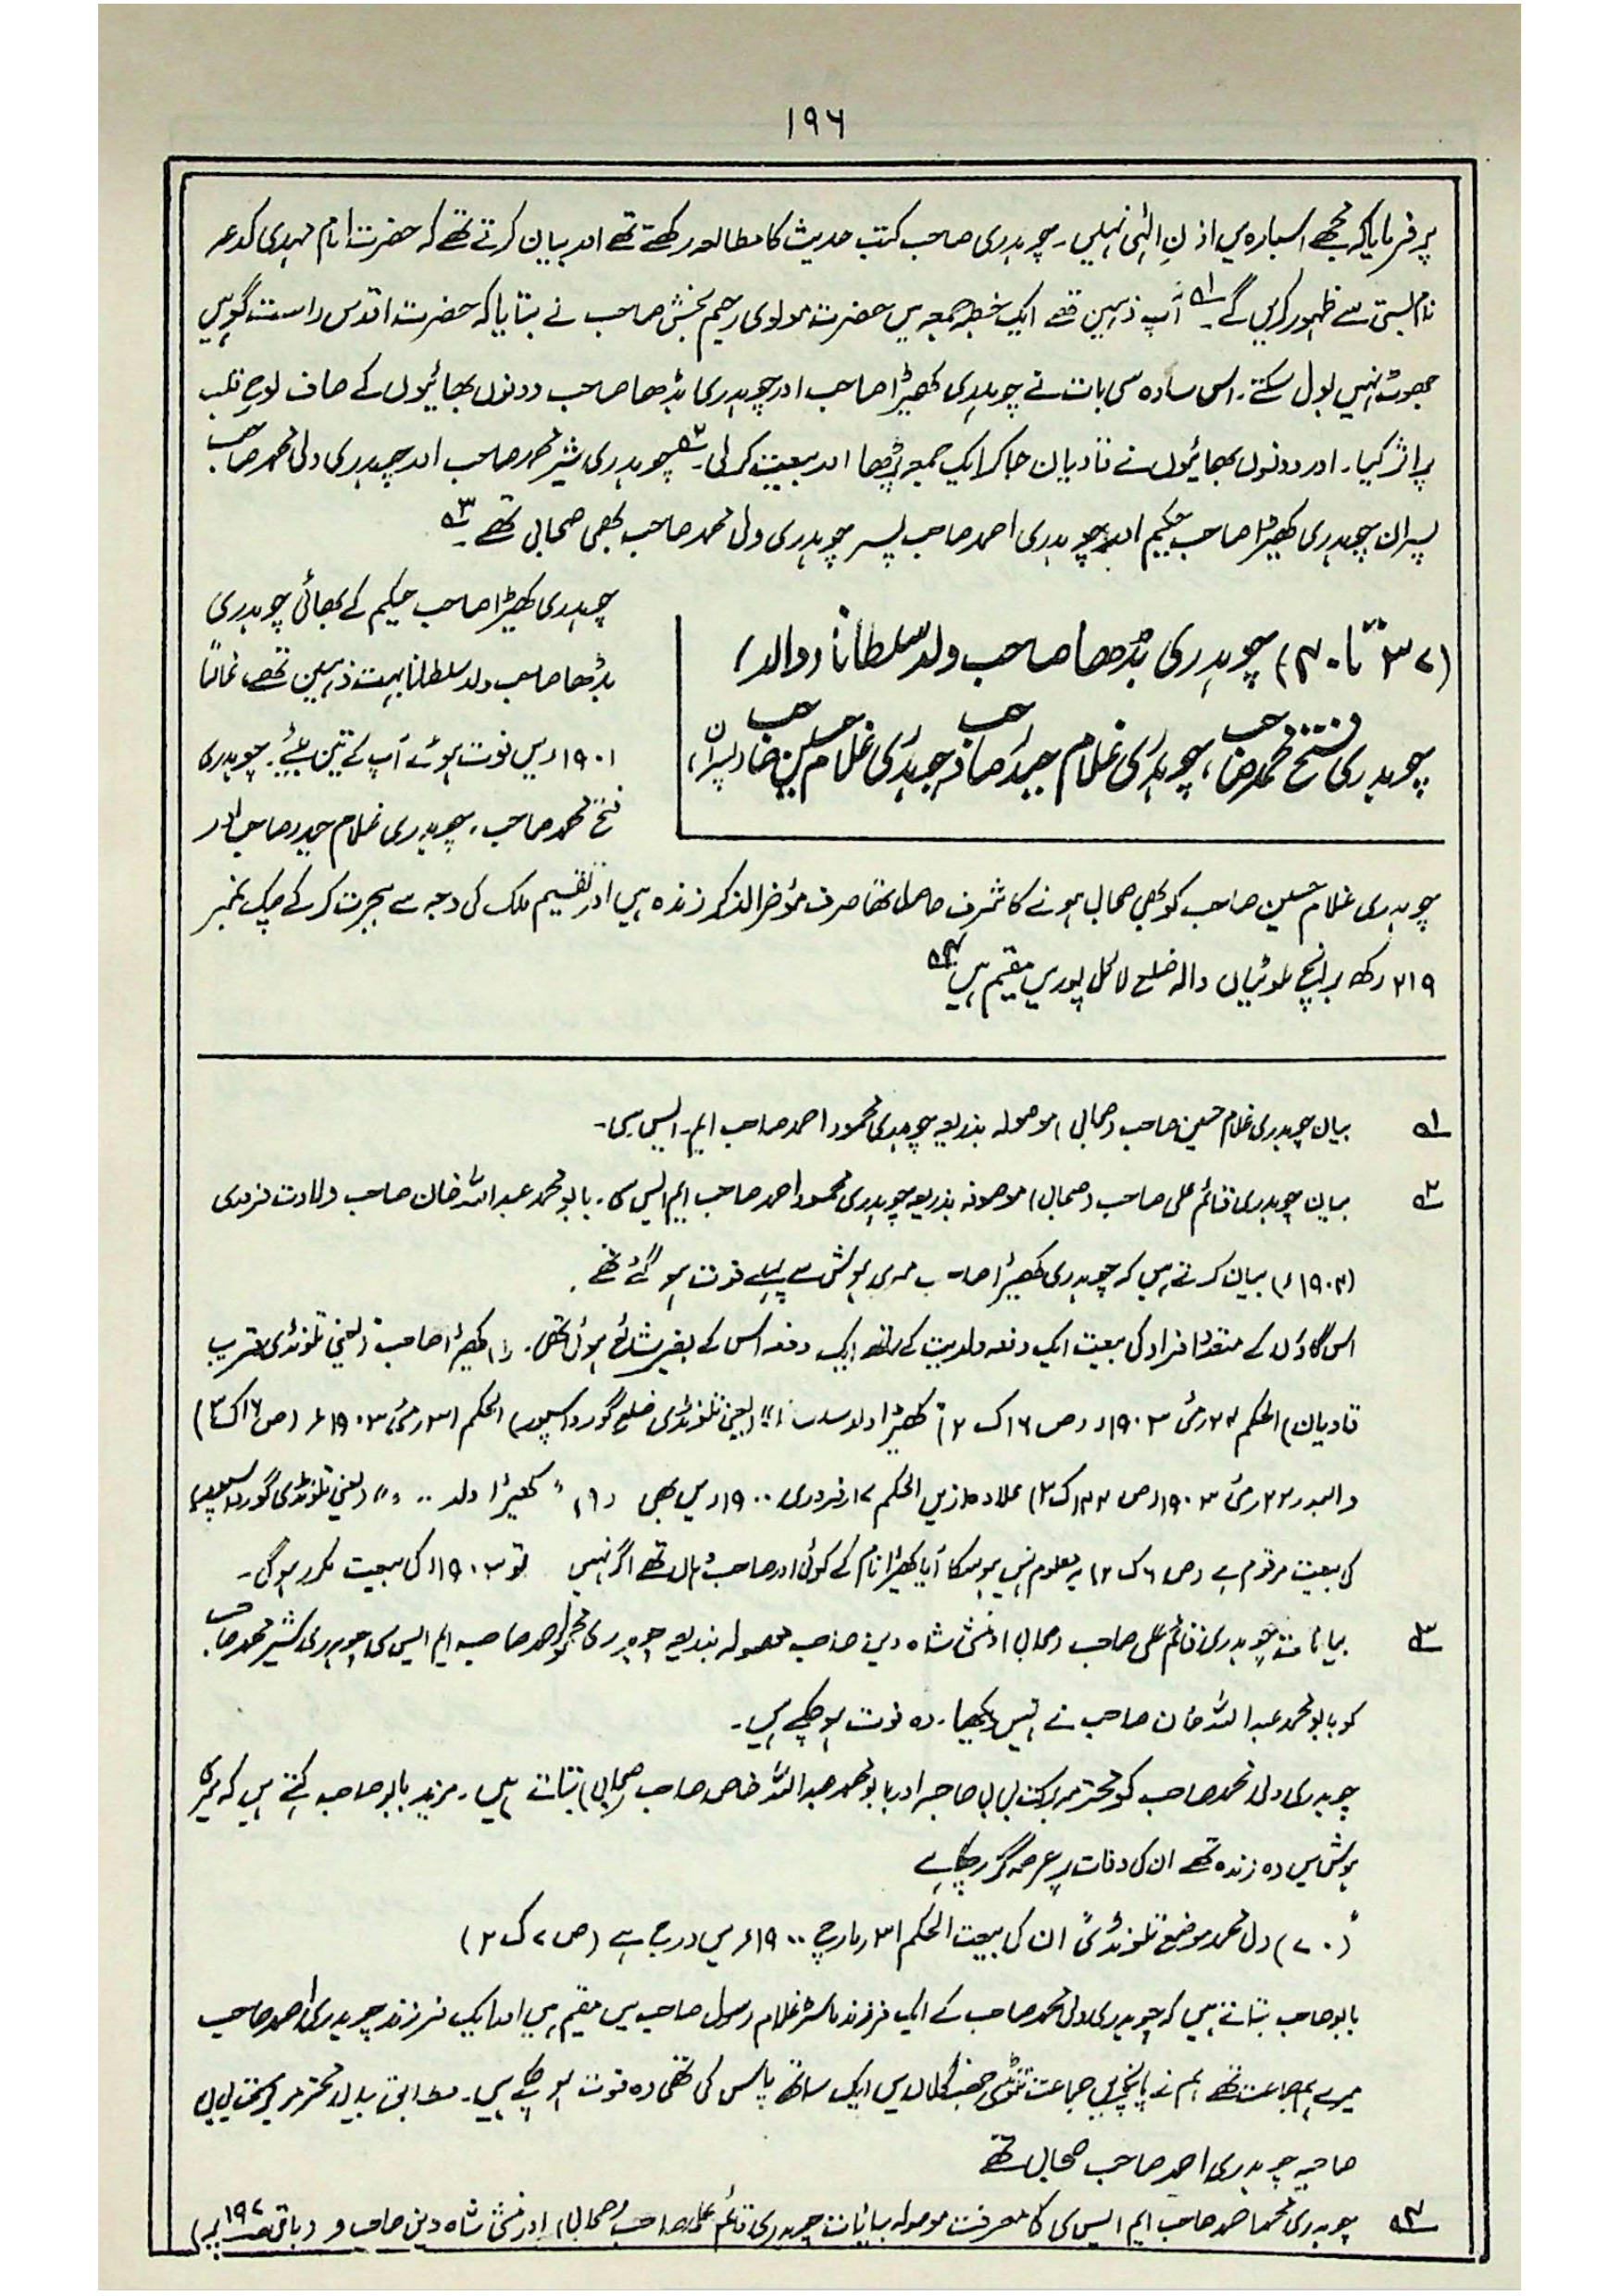 ۱۹۶
پر فرمایا کہ مجھے اس بارہ میں اذنِ الٰہی نہیں۔ چوہدری صاحب کتب حدیث کا مطالعہ رکھتے تھے اور بیان کرتے تھے کہ حضرت امام مہدی کدعہ
نام بستی سے ظہور کریں گے۔ ۱؎ آپ ذہین تھے ایک خطبہ جمعہ میں حضرت مولوی رحیم بخش صاحب نے بتایا کہ حضرت اقدس راست گو ہیں
جھوٹ نہیں بول سکتے۔ اس سادہ سی بات نے چوہدری کھیڑا صاحب اور چوہدری بڈھا صاحب دونوں بھائیوں کے صاف لوحِ قلب
پر اثر کیا۔ اور دونوں بھائیوں نے قادیان جا کر ایک جمعہ پڑھا اور بیعت کر لی۔ ۲؎ چوہدری شیر محمد صاحب اور چوہدری ولی محمد صاحب
پسران چوہدری کھیڑا صاحب حکیم اور چوہدری احمد صاحب پسر چوہدری ولی محمد صاحب بھی صحابی تھے۔ ۳؎
(۳۷ تا ۴۰) چوہدری بڈھا صاحب ولد سلطانا (والد)
چوہدری فتح محمد صاحب، چوہدری غلام حیدر صاحب، چوہدری غلام حسین صاحب (پسران)
چوہدری کھیڑا صاحب حکیم کے بھائی چوہدری
بڈھا صاحب ولد سلطانا بہت ذہین تھے، غالباً
۱۹۰۱ء میں فوت ہوئے آپ کے تین بیٹے۔ چوہدری
فتح محمد صاحب، چوہدری غلام حیدر صاحب اور
چوہدری غلام حسین صاحب کو بھی صحابی ہونے کا شرف حاصل تھا صرف مؤخر الذکر زندہ ہیں اور تقسیم ملک کی وجہ سے ہجرت کر کے چک نمبر
۲۱۹ رکھ برانچ ملوئیاں والہ ضلع لائل پور میں مقیم ہیں ۴؎
۱؎ بیان چوہدری غلام حسین صاحب (صحابی) موصولہ بذریعہ چوہدری محمود احمد صاحب ایم۔ ایس سی۔
۲؎ بیان چوہدری قائم علی صاحب (صحابی) موصولہ بذریعہ چوہدری محمود احمد صاحب ایم ایس سی۔ بابو محمد عبد اللہ خان صاحب ولادت فروری
(۱۹۰۴ء) بیان کرتے ہیں کہ چوہدری کھیڑا صاحب میری ہوش سے پہلے فوت ہو گئے تھے۔
اس گاؤں کے متعدد افراد کی بیعت ایک دفعہ ولدیت کے ساتھ ایک دفعہ اس کے بغیر شائع ہوئی تھی۔ (۱) کھیڑا صاحب (یعنی تلونڈی قریب
قادیان) الحکم ۲۴ مئی ۱۹۰۳ء (ص ۱۶ ک ۲) کھیڑا ولد (یعنی تلونڈی ضلع گورداسپور) الحکم ۳۱ مئی ۱۹۰۳ء (ص ۱۶ ک ۳)
و البدر ۲۲ مئی ۱۹۰۳ء (ص ۱۴۴ ک ۳) علاوہ ازیں الحکم ۱۷ فروری ۱۹۰۰ء میں بھی (۹) "کھیڑا ولد ..." (یعنی تلونڈی گورداسپور)
کی بیعت مرقوم ہے (ص ۶ ک ۲) یہ معلوم نہیں ہو سکا آیا کھیڑا نام کے کوئی اور صاحب وہاں تھے اگر نہیں تو ۱۹۰۳ء کی بیعت مکرر ہو گی۔
۳؎ بیانات چوہدری قائم علی صاحب (صحابی) و منشی شاہ دین صاحب موصولہ بذریعہ چوہدری محمود احمد صاحب ایم ایس سی چوہدری شیر محمد صاحب
کو بابو محمد عبد اللہ خان صاحب نے نہیں دیکھا۔ وہ فوت ہو چکے ہیں۔
چوہدری ولی محمد صاحب کو محترمہ برکت بی بی صاحبہ اور بابو محمد عبد اللہ خان صاحب صحابی بتاتے ہیں۔ مزید بابو صاحب کہتے ہیں کہ میری
ہوش میں وہ زندہ تھے ان کی وفات پر عرصہ گزر چکا ہے
"(۷۰) ولی محمد موضع تلونڈی" ان کی بیعت الحکم ۳۱ مارچ ۱۹۰۰ء میں درج ہے (ص ۷ ک ۲)
بابو صاحب بتاتے ہیں کہ چوہدری ولی محمد صاحب کے ایک فرزند ماسٹر غلام رسول صاحب میں مقیم ہیں اور ایک فرزند چوہدری احمد صاحب
میرے ہم جماعت تھے ہم نے پانچویں جماعت تلونڈی جھنگلاں میں ایک ساتھ پاس کی تھی وہ فوت ہو چکے ہیں۔ مطابق بیان محترمہ برکت بی بی
صاحبہ چوہدری احمد صاحب صحابی تھے
۴؎ چوہدری محمود احمد صاحب ایم ایس سی کا معرفت موصولہ بیانات چوہدری قائم علی صاحب (صحابی) اور منشی شاہ دین صاحب و (باقی ص ۱۹۷ پر)